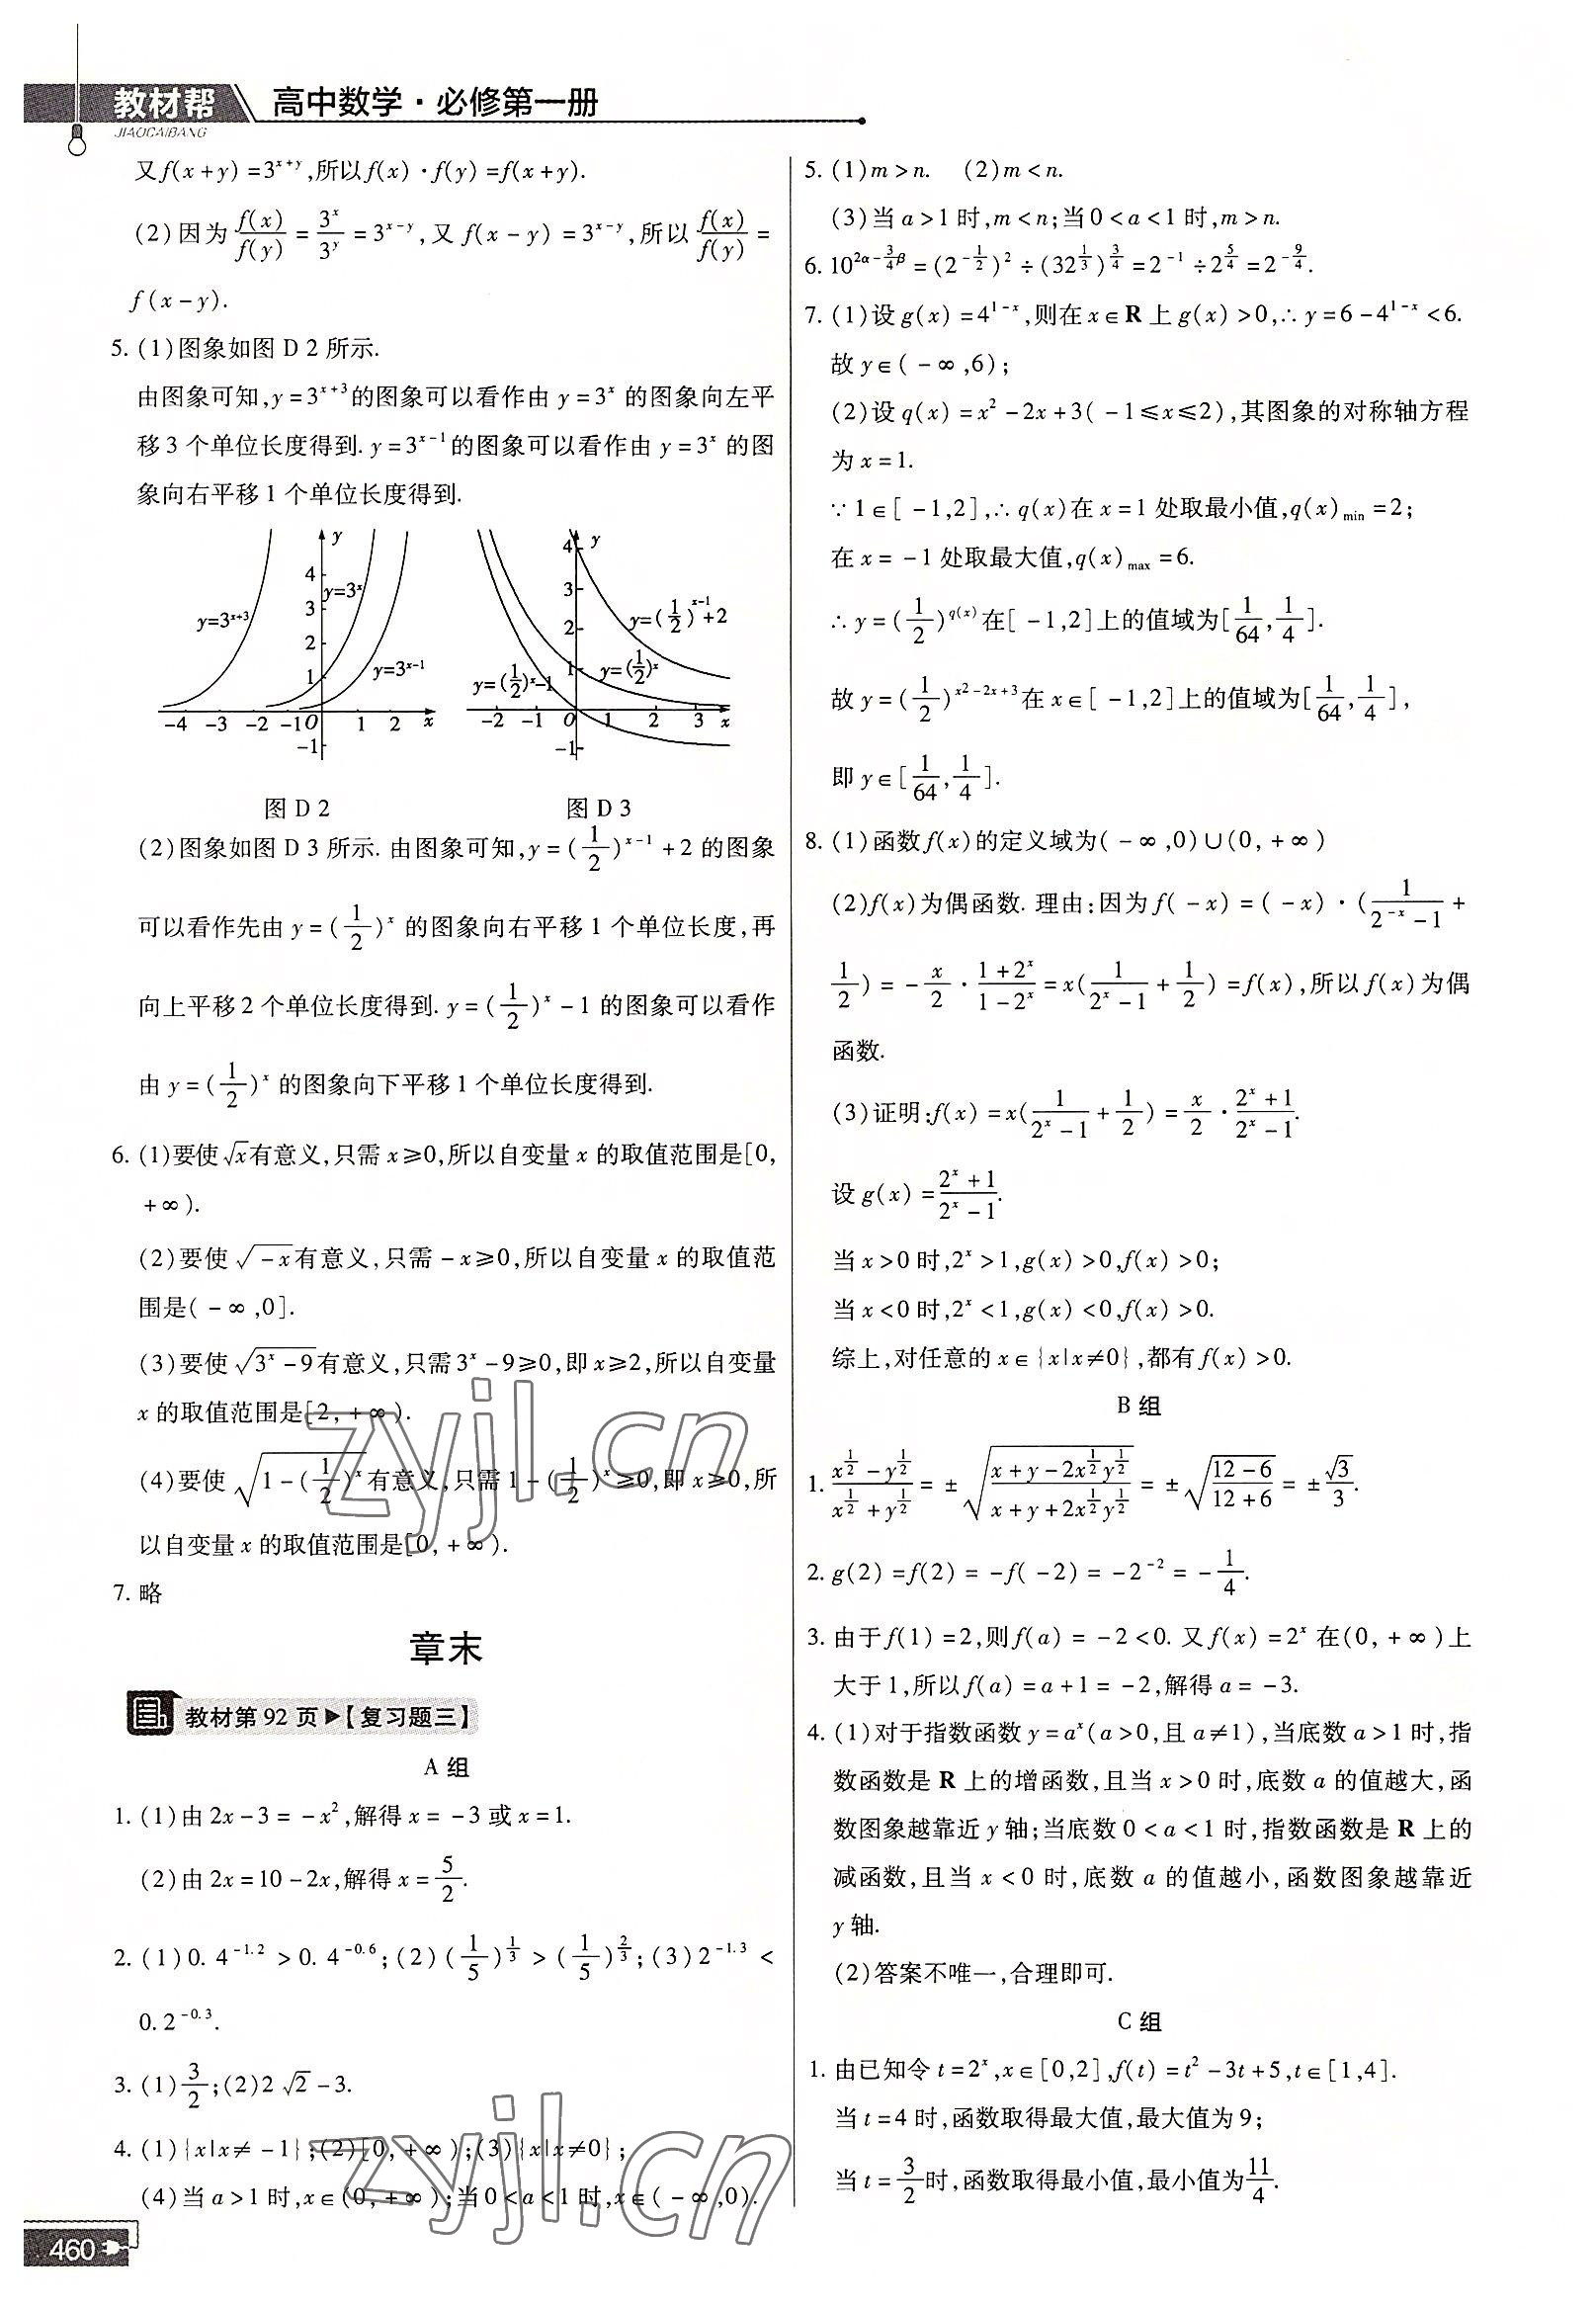 教材帮 高中数学·必修第一册
JIAOCAIBANG
又f(x+y)=3^{x+y},所以f(x)·f(y)=f(x+y).
(2)因为\frac{f(x)}{f(y)}=\frac{3^x}{3^y}=3^{x-y},又f(x-y)=3^{x-y},所以\frac{f(x)}{f(y)}=
f(x-y).
5.(1)图象如图D 2所示.
由图象可知,y=3^{x+3}的图象可以看作由y=3^x的图象向左平
移3个单位长度得到.y=3^{x-1}的图象可以看作由y=3^x的图
象向右平移1个单位长度得到.
y 4 3 2 1 -4 -3 -2 -1 O 1 2 x -1
y=3^{x+3} y=3^x y=3^{x-1}
图D 2
y 4 3 2 1 -2 -1 O 1 2 3 x -1
y=(\frac{1}{2})^{x-1}+2 y=(\frac{1}{2})^x y=(\frac{1}{2})^x-1
图D 3
(2)图象如图D 3所示.由图象可知,y=(\frac{1}{2})^{x-1}+2的图象
可以看作先由y=(\frac{1}{2})^x的图象向右平移1个单位长度,再
向上平移2个单位长度得到.y=(\frac{1}{2})^x-1的图象可以看作
由y=(\frac{1}{2})^x的图象向下平移1个单位长度得到.
6.(1)要使\sqrt{x}有意义,只需x≥0,所以自变量x的取值范围是[0,
+∞).
(2)要使\sqrt{-x}有意义,只需-x≥0,所以自变量x的取值范
围是(-∞,0].
(3)要使\sqrt{3^x-9}有意义,只需3^x-9≥0,即x≥2,所以自变量
x的取值范围是[2,+∞).
(4)要使\sqrt{1-(\frac{1}{2})^x}有意义,只需1-(\frac{1}{2})^x≥0,即x≥0,所
以自变量x的取值范围是[0,+∞).
7.略
章末
教材第92页▶【复习题三】
A组
1.(1)由2x-3=-x^2,解得x=-3或x=1.
(2)由2x=10-2x,解得x=\frac{5}{2}.
2.(1)0.4^{-1.2}>0.4^{-0.6};(2)(\frac{1}{5})^{\frac{1}{3}}>(\frac{1}{5})^{\frac{2}{3}};(3)2^{-1.3}<
0.2^{-0.3}.
3.(1)\frac{3}{2};(2)2\sqrt{2}-3.
4.(1){x|x≠-1};(2)[0,+∞);(3){x|x≠0};
(4)当a>1时,x∈(0,+∞);当0<a<1时,x∈(-∞,0).
460
5.(1)m>n. (2)m<n.
(3)当a>1时,m<n;当0<a<1时,m>n.
6.10^{2α-\frac{3}{4}β}=(2^{-\frac{1}{2}})^2÷(32^{\frac{1}{3}})^{\frac{3}{4}}=2^{-1}÷2^{\frac{5}{4}}=2^{-\frac{9}{4}}.
7.(1)设g(x)=4^{1-x},则在x∈R上g(x)>0,∴y=6-4^{1-x}<6.
故y∈(-∞,6);
(2)设q(x)=x^2-2x+3(-1≤x≤2),其图象的对称轴方程
为x=1.
∵1∈[-1,2],∴q(x)在x=1处取最小值,q(x)_{min}=2;
在x=-1处取最大值,q(x)_{max}=6.
∴y=(\frac{1}{2})^{q(x)}在[-1,2]上的值域为[\frac{1}{64},\frac{1}{4}].
故y=(\frac{1}{2})^{x^2-2x+3}在x∈[-1,2]上的值域为[\frac{1}{64},\frac{1}{4}],
即y∈[\frac{1}{64},\frac{1}{4}].
8.(1)函数f(x)的定义域为(-∞,0)∪(0,+∞)
(2)f(x)为偶函数.理由:因为f(-x)=(-x)·(\frac{1}{2^{-x}-1}+
\frac{1}{2})=-\frac{x}{2}·\frac{1+2^x}{1-2^x}=x(\frac{1}{2^x-1}+\frac{1}{2})=f(x),所以f(x)为偶
函数.
(3)证明:f(x)=x(\frac{1}{2^x-1}+\frac{1}{2})=\frac{x}{2}·\frac{2^x+1}{2^x-1}.
设g(x)=\frac{2^x+1}{2^x-1}.
当x>0时,2^x>1,g(x)>0,f(x)>0;
当x<0时,2^x<1,g(x)<0,f(x)>0.
综上,对任意的x∈{x|x≠0},都有f(x)>0.
B组
1.\frac{x^{\frac{1}{2}}-y^{\frac{1}{2}}}{x^{\frac{1}{2}}+y^{\frac{1}{2}}}=±\sqrt{\frac{x+y-2x^{\frac{1}{2}}y^{\frac{1}{2}}}{x+y+2x^{\frac{1}{2}}y^{\frac{1}{2}}}}=±\sqrt{\frac{12-6}{12+6}}=±\frac{\sqrt{3}}{3}.
2.g(2)=f(2)=-f(-2)=-2^{-2}=-\frac{1}{4}.
3.由于f(1)=2,则f(a)=-2<0.又f(x)=2^x在(0,+∞)上
大于1,所以f(a)=a+1=-2,解得a=-3.
4.(1)对于指数函数y=a^x(a>0,且a≠1),当底数a>1时,指
数函数是R上的增函数,且当x>0时,底数a的值越大,函
数图象越靠近y轴;当底数0<a<1时,指数函数是R上的
减函数,且当x<0时,底数a的值越小,函数图象越靠近
y轴.
(2)答案不唯一,合理即可.
C组
1.由已知令t=2^x,x∈[0,2],f(t)=t^2-3t+5,t∈[1,4].
当t=4时,函数取得最大值,最大值为9;
当t=\frac{3}{2}时,函数取得最小值,最小值为\frac{11}{4}.
zyjl.cn
zyjl.cn